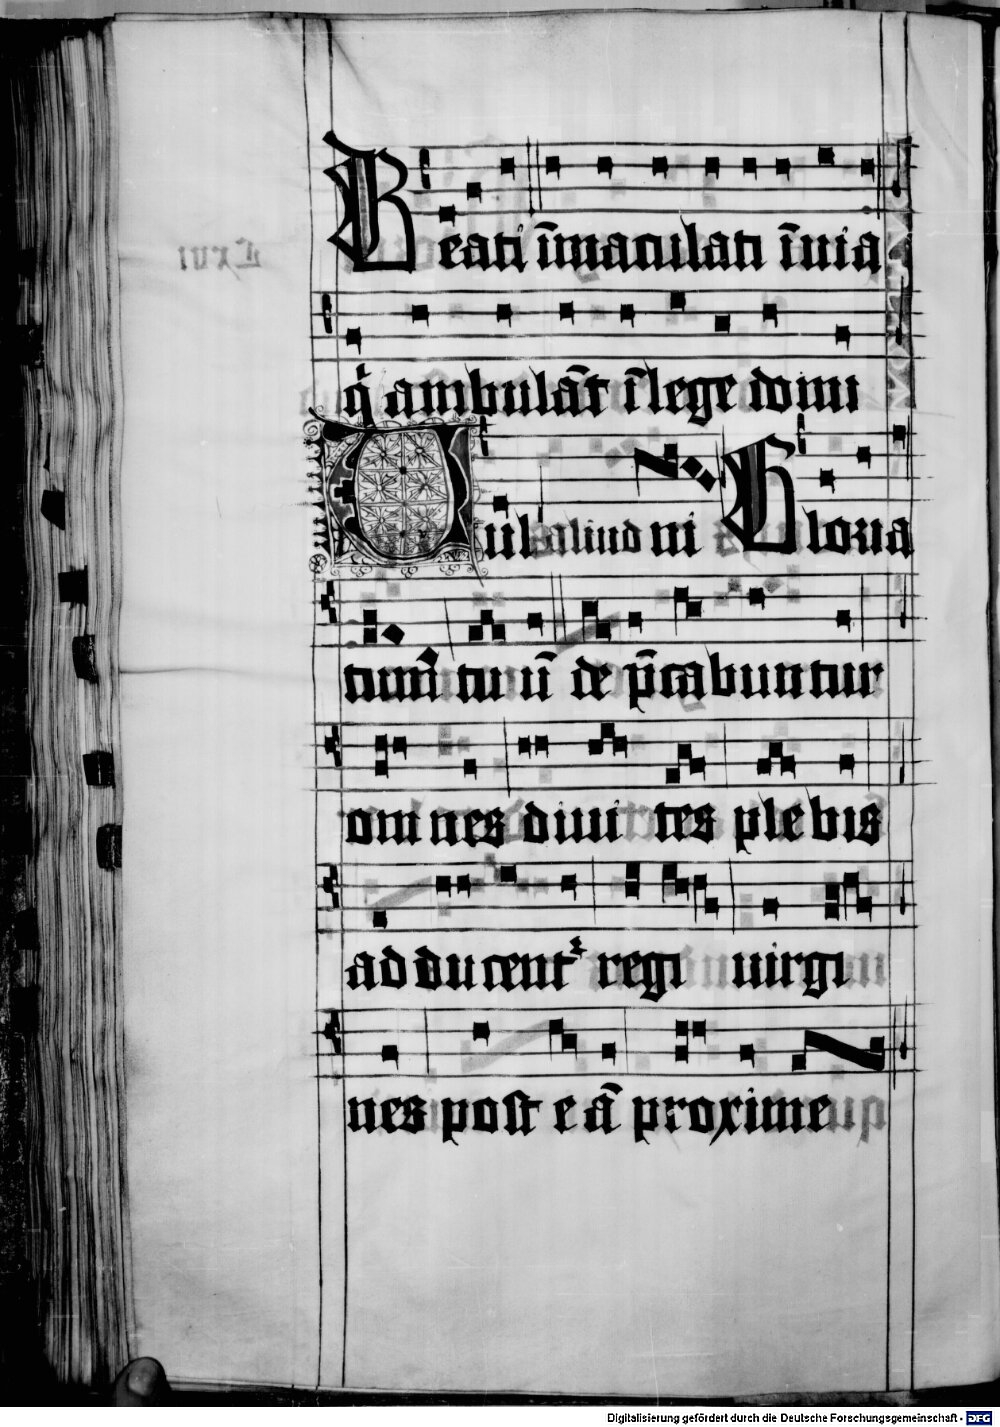 Beati īmaculati ī uia
q̇ ambulāt ī lege domi
ni Gloria
tum̄ tuū de p̄cabuntur
omnes diuites plebis
adducent᷑ regi uirgi
nes post eā proxime
Digitalisierung gefördert durch die Deutsche Forschungsgemeinschaft - DFG